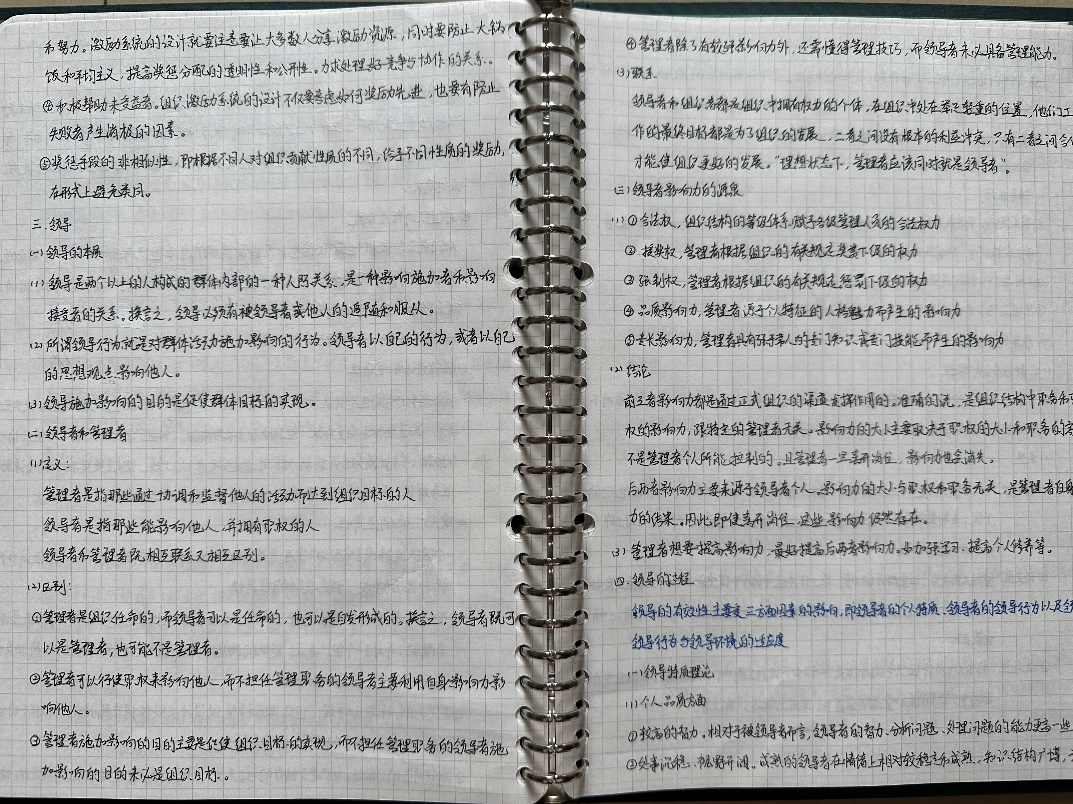 和努力。激励系统的设计就要注意要让大多数人分享激励资源，同时要防止大锅
饭和平均主义，提高奖惩分配的透明性和公开性。力求处理好竞争与协作的关系。
④积极帮助未受益者。组织激励系统的设计不仅要考虑如何奖励先进，也要有防止
失败者产生消极的因素。
⑤奖惩手段的非相似性，即根据不同人对组织贡献性质的不同，给予不同性质的奖励，
在形式上避免类同。
三.领导
(一)领导的本质
(1)领导是两个以上的人构成的群体内部的一种人际关系，是一种影响施加者和影响
接受者的关系。换言之，领导必须有被领导者或他人的追随和服从。
(2)所谓领导行为就是对群体活动施加影响的行为。领导者以自己的行为，或者以自己
的思想观点影响他人。
(3)领导施加影响的目的是促使群体目标的实现。
(二)领导者和管理者
(1)定义：
管理者是指那些通过协调和监督他人的活动而达到组织目标的人
领导者是指那些能影响他人，并拥有职权的人
领导者和管理者既相互联系又相互区别。
(2)区别：
①管理者是组织任命的，而领导者可以是任命的，也可以是自发形成的。换言之，领导者既可
以是管理者，也可能不是管理者。
②管理者可以行使职权来影响他人，而不担任管理职务的领导者主要利用自身影响力影
响他人。
③管理者施加影响的目的主要是促使组织目标的实现，而不担任管理职务的领导者施
加影响的目的未必是组织目标。
④管理者除了有较强影响力外，还需懂得管理技巧，而领导者未必具备管理能力。
(3)联系
领导者和组织者都是组织中拥有权力的个体，在组织中处在举足轻重的位置，他们工
作的最终目标都是为了组织的发展，二者之间没有根本的利益冲突，只有二者之间合
才能使组织更好的发展。“理想状态下，管理者应该同时就是领导者”。
(三)领导者影响力的源泉
(1)①合法权，组织结构的等级体系赋予各级管理人员的合法权力
②奖赏权，管理者根据组织的有关规定奖赏下级的权力
③强制权，管理者根据组织的有关规定惩罚下级的权力
④品质影响力，管理者源于个人特征的人格魅力而产生的影响力
⑤专长影响力，管理者具有强于常人的专门知识或专门技能而产生的影响力
(2)结论
前三者影响力都是通过正式组织的渠道发挥作用的。准确的说，是组织结构中职务和职
权的影响力，跟特定的管理者无关。影响力的大小主要取决于职权的大小和职务的高
不是管理者个人所能控制的。且管理者一旦离开岗位，影响力也会消失。
后两者影响力主要来源于领导者个人。影响力的大小与职权和职务无关，是管理者自身
力的结果。因此即使离开岗位，这些影响力仍然存在。
(3)管理者想要提高影响力，最好提高后两者影响力。如加强学习、提高个人修养等。
四.领导的过程
领导的有效性主要受三方面因素的影响，即领导者的个人特质、领导者的领导行为以及领
领导行为与领导环境的适应度
(一)领导特质理论
(1)个人品质方面
①较高的智力。相对于被领导者而言，领导者的智力、分析问题、处理问题的能力要高一些
②处事沉稳，视野开阔。成熟的领导者在情绪上相对较稳定和成熟，知识结构广博，